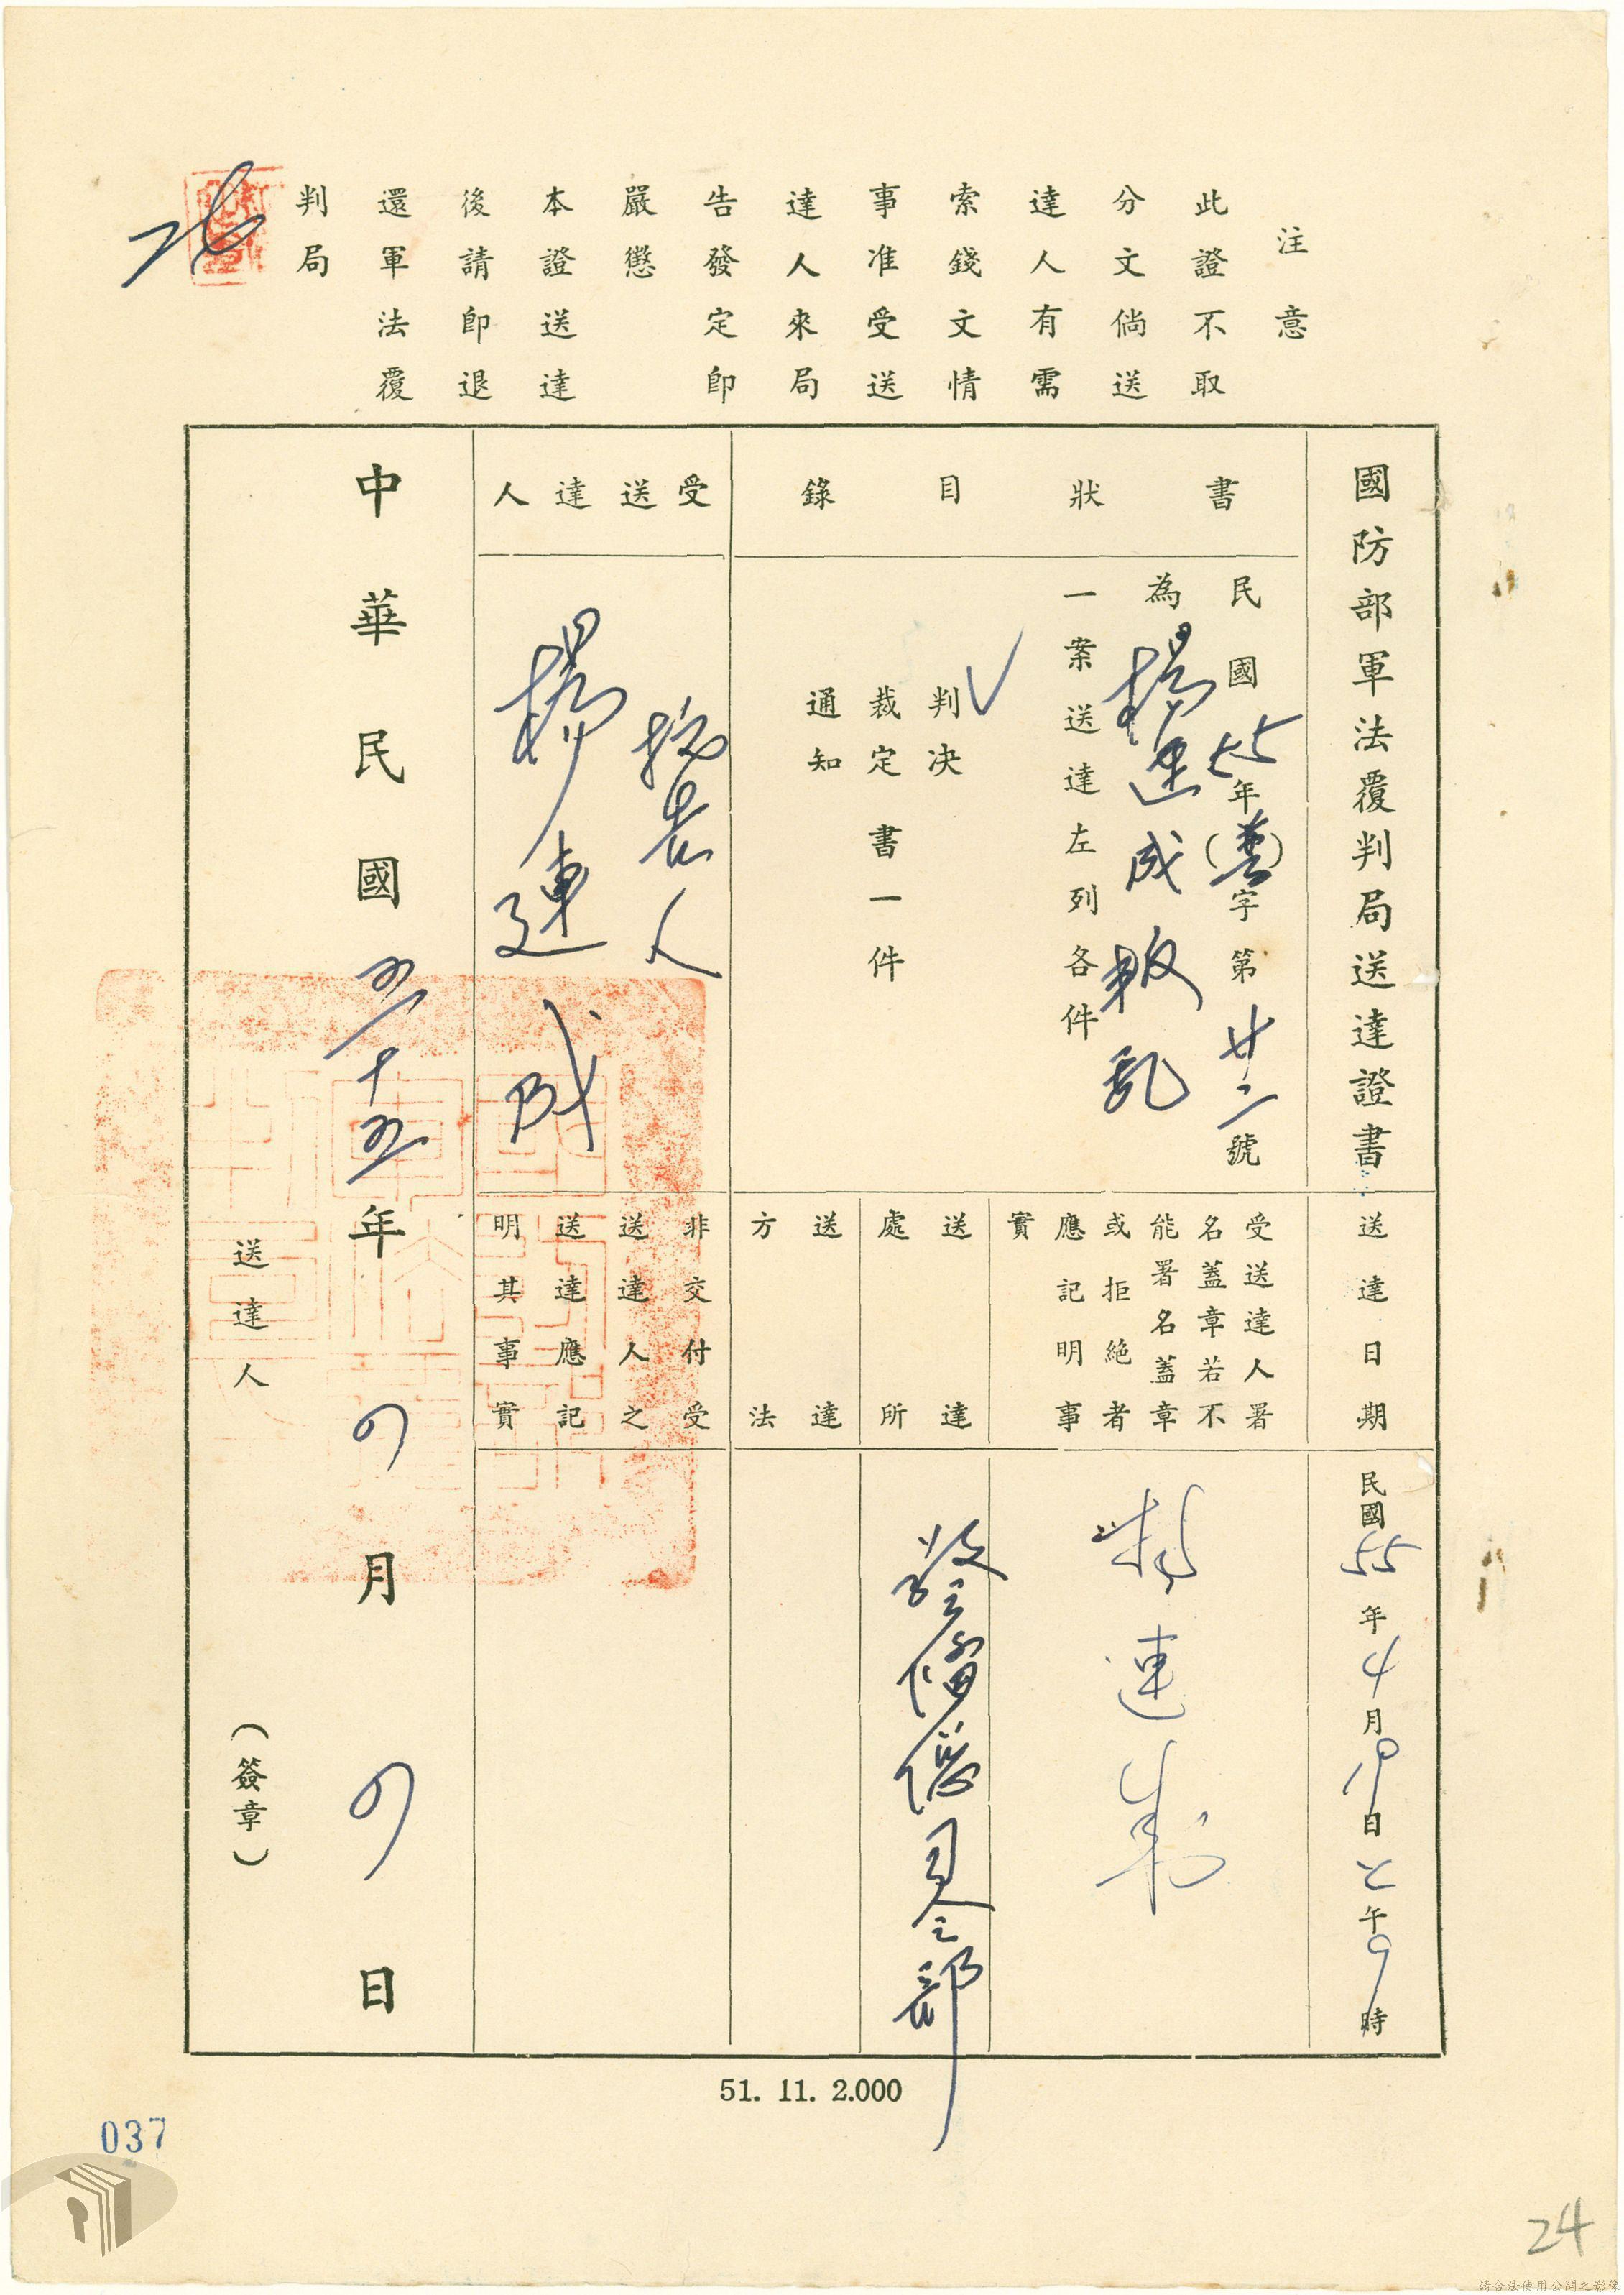 注意
此證不取
分文倘送
達人有需
索錢文情
事准受送
達人來局
告發定即
嚴懲
本證送達
後請即退
還軍法覆
判局
國防部軍法覆判局送達證書
書狀目錄
民國55年(普)字第廿二號
為楊連成叛乱
一案送達左列各件
判決
裁定書一件
通知
受送達人
被告人
楊連成
送達日期
民國55年4月19日上午9時
受送達人署
名蓋章若不
能署名蓋章
或拒絕者
應記明事
實
楊連成
送達
處所
警備總司令部
送達
方法
非交付受
送達人之
送達應記
明其事實
中華民國五十五年四月四日
送達人
(簽章)
51. 11. 2.000
037
24
請合法使用公開之影像